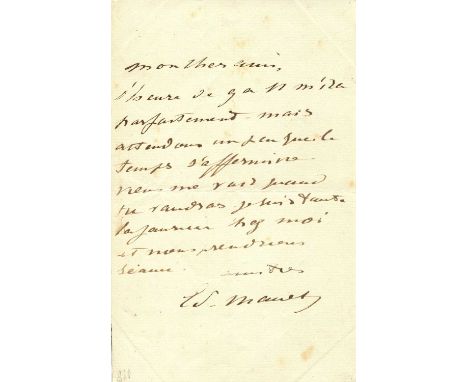 mon cher ami,
l'heure de 9 à 11 m'ira
parfaitement mais
attendons un peu que le
temps s'affermisse
viens me voir quand
tu voudras je suis toute
la journée chez moi
et nous prendrons
séance.
Ed. Manet